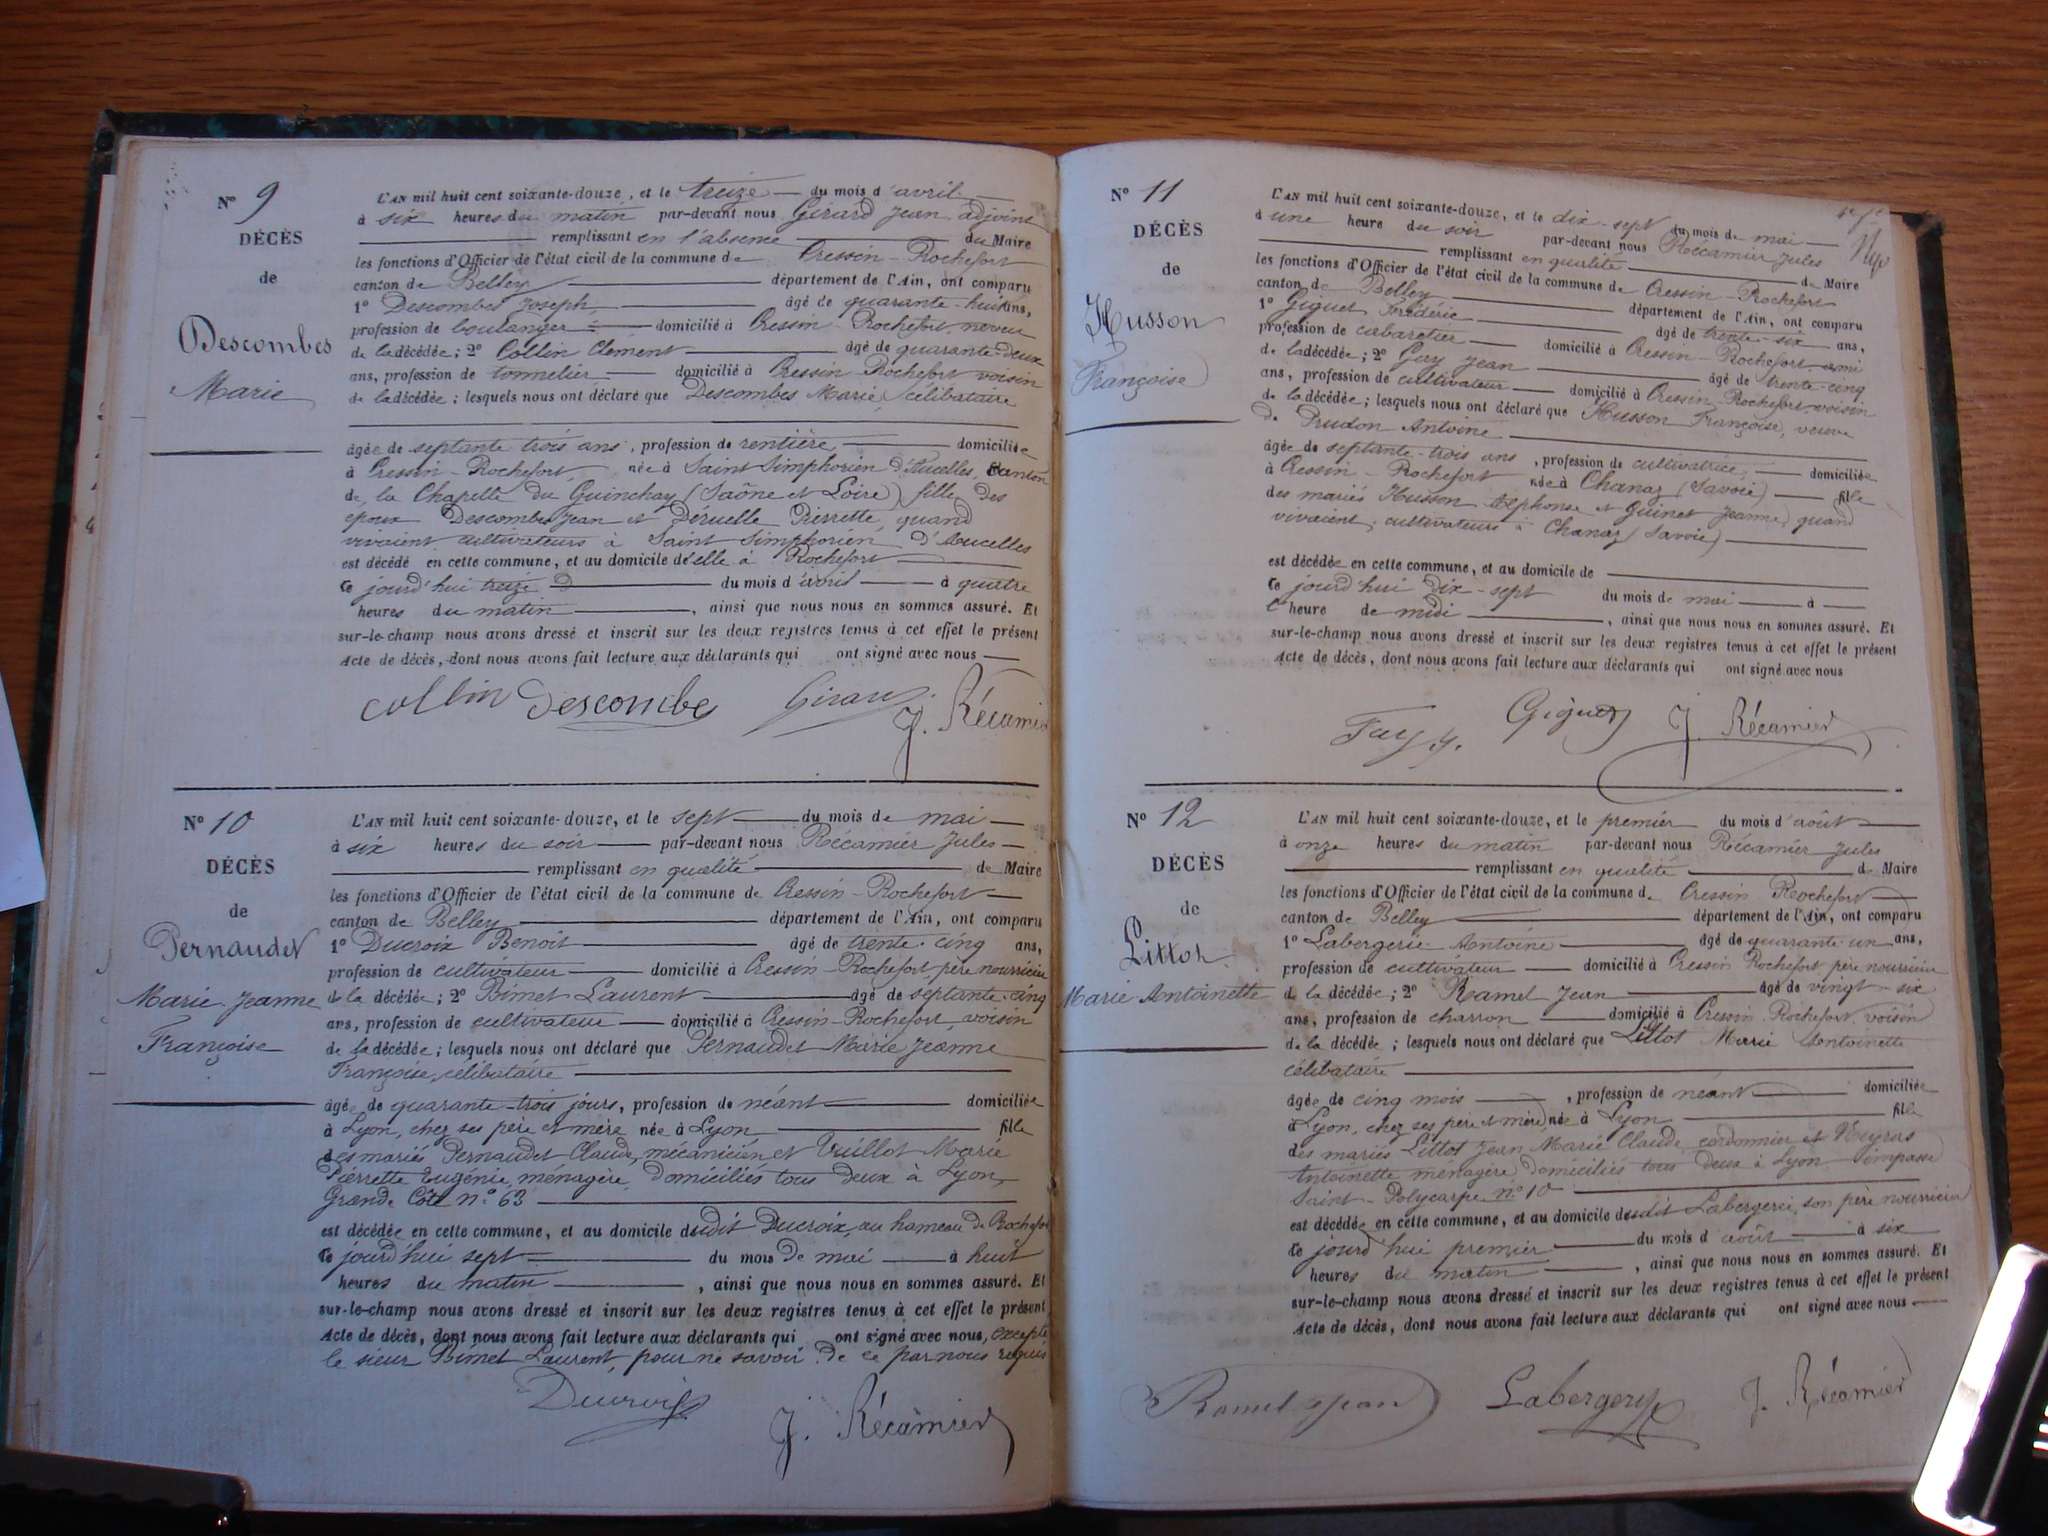 N° 9
DÉCÈS
de
Descombes
Marie
L'AN mil huit cent soixante-douze, et le treize du mois d'avril
à six heures du matin par-devant nous Girard Jean adjoint
remplissant en l'absence du Maire
les fonctions d'Officier de l'état civil de la commune de Cressin-Rochefort
canton de Belley département de l'Ain, ont comparu
1° Descombes Joseph, âgé de quarante-huit ans,
profession de boulanger domicilié à Cressin-Rochefort, neveu
de la décédée; 2° Collin Clément âgé de quarante-deux
ans, profession de tonnelier domicilié à Cressin Rochefort voisin
de la décédée; lesquels nous ont déclaré que Descombes Marie, célibataire
âgée de septante trois ans, profession de rentière domiciliée
à Cressin-Rochefort, née à Saint Simphorien d'Ancelles, canton
de la Chapelle du Guinchay (Saône et Loire) fille des
époux Descombes Jean et Déruelle Pierrette, quand
vivaient cultivateurs à Saint Simphorien d'Ancelles
est décédé en cette commune, et au domicile d'elle à Rochefort
ce jourd'hui treize du mois d'avril à quatre
heures du matin, ainsi que nous nous en sommes assuré. Et
sur-le-champ nous avons dressé et inscrit sur les deux registres tenus à cet effet le présent
Acte de décès, dont nous avons fait lecture aux déclarants qui ont signé avec nous
Collin Descombes Girard J. Récamier
N° 10
DÉCÈS
de
Pernaudet
Marie Jeanne
Françoise
L'AN mil huit cent soixante-douze, et le sept du mois de mai
à six heures du soir par-devant nous Récamier Jules
remplissant en qualité de Maire
les fonctions d'Officier de l'état civil de la commune de Cressin-Rochefort
canton de Belley département de l'Ain, ont comparu
1° Ducroix Benoit âgé de trente-cinq ans,
profession de cultivateur domicilié à Cressin-Rochefort père nourricier
de la décédée; 2° Bimet Laurent âgé de septante-cinq
ans, profession de cultivateur domicilié à Cressin-Rochefort, voisin
de la décédée; lesquels nous ont déclaré que Pernaudet Marie Jeanne
Françoise, célibataire
âgée de quarante-trois jours, profession de néant domiciliée
à Lyon, chez ses père et mère née à Lyon fille
des mariés Pernaudet Claude, mécanicien et Vuillot Marie
Pierrette Eugénie, ménagère, domiciliés tous deux à Lyon,
Grande Côte n° 63
est décédée en cette commune, et au domicile dudit Ducroix, au hameau de Rochefort
ce jourd'hui sept du mois de mai à huit
heures du matin, ainsi que nous nous en sommes assuré. Et
sur-le-champ nous avons dressé et inscrit sur les deux registres tenus à cet effet le présent
Acte de décès, dont nous avons fait lecture aux déclarants qui ont signé avec nous, excepté
le sieur Bimet Laurent, pour ne savoir de ce par nous requis
Ducroix J. Récamier
N° 11
DÉCÈS
de
Husson
Françoise
L'AN mil huit cent soixante-douze, et le dix-sept du mois de mai
à une heure du soir par-devant nous Récamier Jules
remplissant en qualité de Maire
les fonctions d'Officier de l'état civil de la commune de Cressin-Rochefort
canton de Belley département de l'Ain, ont comparu
1° Giguet Frédéric âgé de trente-six ans,
profession de cabaretier domicilié à Cressin-Rochefort ami
de la décédée; 2° Guy Jean âgé de trente-cinq
ans, profession de cultivateur domicilié à Cressin-Rochefort voisin
de la décédée; lesquels nous ont déclaré que Husson Françoise, veuve
de Prudon Antoine
âgée de septante-trois ans, profession de cultivatrice domiciliée
à Cressin-Rochefort née à Chanaz (Savoie) fille
des mariés Husson Alphonse et Guinet Jeanne, quand
vivaient, cultivateurs à Chanaz (Savoie)
est décédée en cette commune, et au domicile de
ce jourd'hui dix-sept du mois de mai à
l'heure de midi, ainsi que nous nous en sommes assuré. Et
sur-le-champ nous avons dressé et inscrit sur les deux registres tenus à cet effet le présent
Acte de décès, dont nous avons fait lecture aux déclarants qui ont signé avec nous
Giguet J. Récamier
N° 12
DÉCÈS
de
Littot
Marie Antoinette
L'AN mil huit cent soixante-douze, et le premier du mois d'août
à onze heures du matin par-devant nous Récamier Jules
remplissant en qualité de Maire
les fonctions d'Officier de l'état civil de la commune de Cressin Rochefort
canton de Belley département de l'Ain, ont comparu
1° Labergerie Antoine âgé de quarante-un ans,
profession de cultivateur domicilié à Cressin Rochefort père nourricier
de la décédée; 2° Ramel Jean âgé de vingt-six
ans, profession de charron domicilié à Cressin Rochefort, voisin
de la décédée; lesquels nous ont déclaré que Littot Marie Antoinette
célibataire
âgée de cinq mois, profession de néant domiciliée
à Lyon, chez ses père et mère, née à Lyon fille
des mariés Littot Jean Marie Claude, cordonnier et Neyras
Antoinette ménagère, domiciliés tous deux à Lyon impasse
Saint-Polycarpe n° 10
est décédée en cette commune, et au domicile dudit Labergerie, son père nourricier
ce jourd'hui premier du mois d'août à six
heures du matin, ainsi que nous nous en sommes assuré. Et
sur-le-champ nous avons dressé et inscrit sur les deux registres tenus à cet effet le présent
Acte de décès, dont nous avons fait lecture aux déclarants qui ont signé avec nous
Ramel Jean Labergery J. Récamier